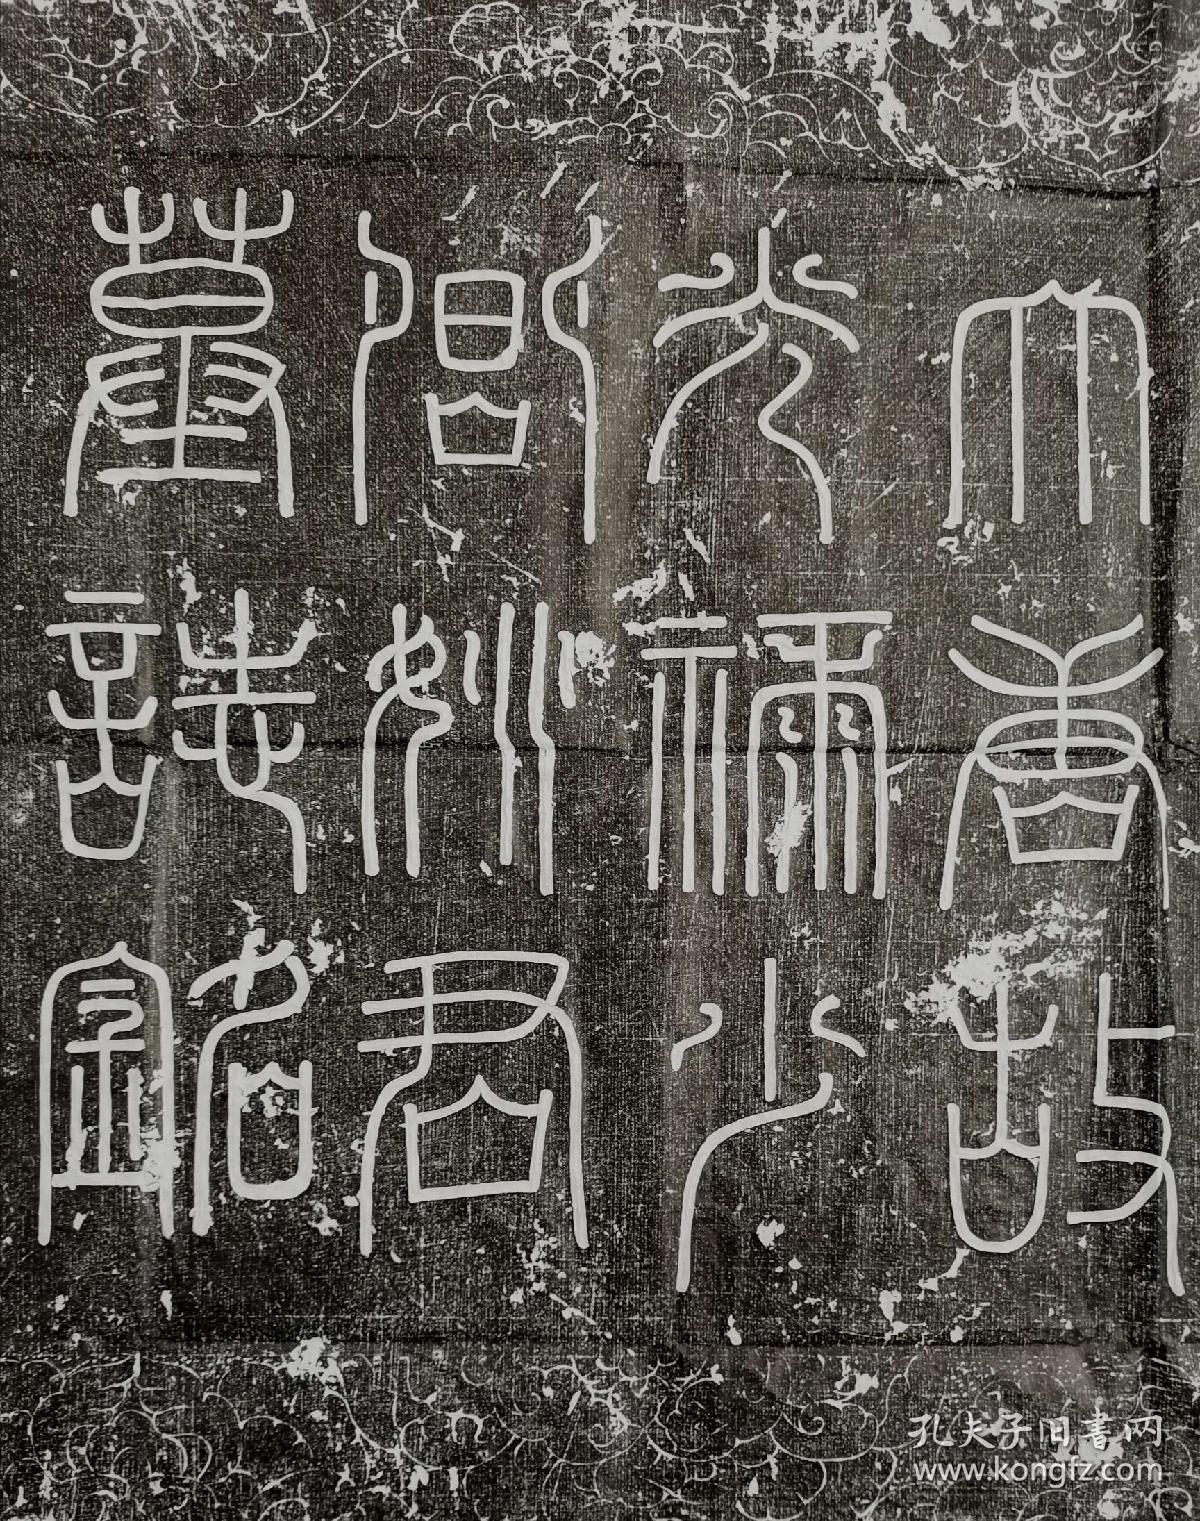 大唐故
光祿少
卿姚君
墓誌銘
孔夫子旧書网
www.kongfz.com